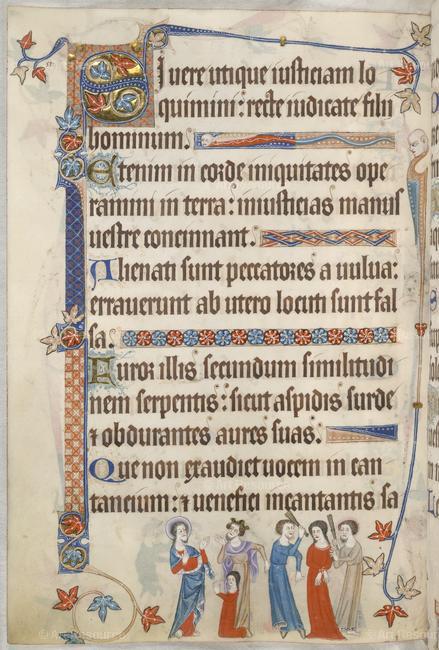 Si uere utique iusticiam lo
quimini: recte iudicate filii
hominum.
Etenim in corde iniquitates ope
ramini in terra: iniusticias manus
uestre concinnant.
Alienati sunt peccatores a uulua:
errauerunt ab utero locuti sunt fal
sa.
Furor illis secundum similitudi
nem serpentis: sicut aspidis surde
⁊ obdurantes aures suas.
Que non exaudiet uocem in can
tancium: ⁊ uenefici incantantis sa